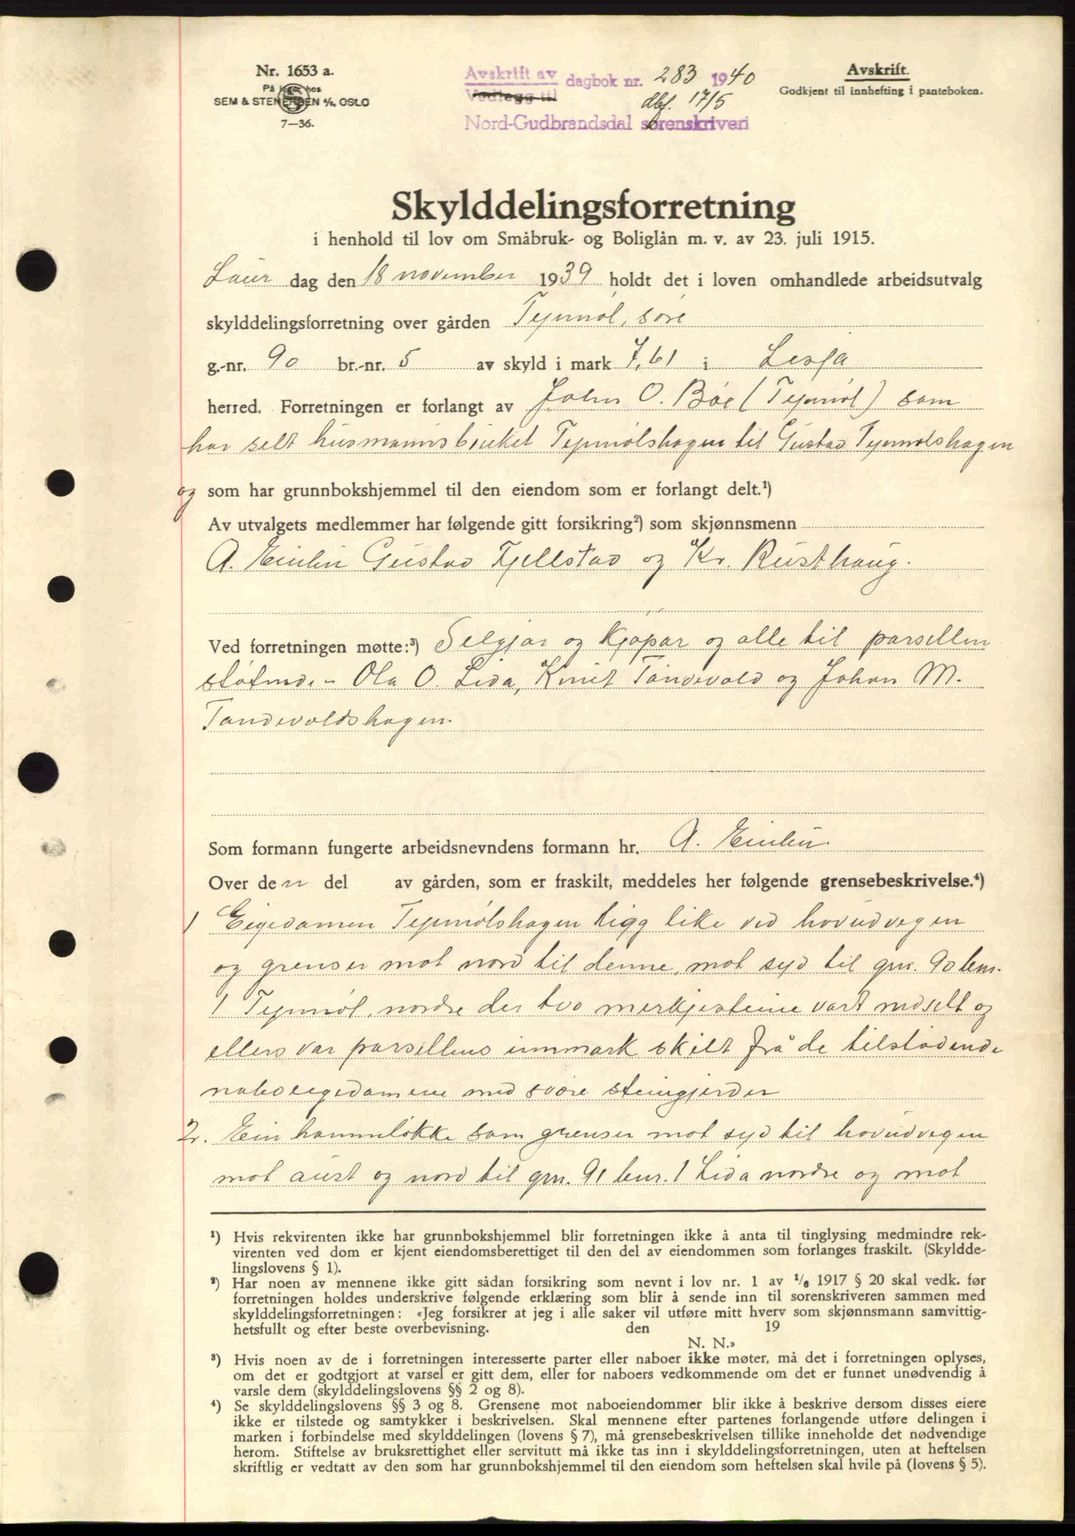 Nr. 1653 a.
På lager hos
SEM & STENERSEN A/S, OSLO
7—36.
Avskrift av dagbok nr. 283 1940
Vedlegg til dbf. 17/5
Nord-Gudbrandsdal sorenskriveri
Avskrift.
Godkjent til innhefting i panteboken.
Skylddelingsforretning
i henhold til lov om Småbruk- og Boliglån m. v. av 23. juli 1915.
Laur dag den 18 november 1939 holdt det i loven omhandlede arbeidsutvalg
skylddelingsforretning over gården Tynnøl, søre
g.-nr. 90 br.-nr. 5 av skyld i mark 7,61 i Lesja
herred. Forretningen er forlangt av John O. Bøe (Tynnøl) som
har selt husmannsbruket Tynnølshagen til Gustav Tynnølshagen
og som har grunnbokshjemmel til den eiendom som er forlangt delt.¹)
Av utvalgets medlemmer har følgende gitt forsikring²) som skjønnsmenn
A. Einbu Gustav Fjellstad og Kr. Rusthaug.
Ved forretningen møtte:³) Seljar og kjøpar og alle til parsellen
støtende - Ola O. Lida, Knut Tandevold og Johan M.
Tandevoldshagen.
Som formann fungerte arbeidsnevndens formann hr. A. Einbu.
Over den del av gården, som er fraskilt, meddeles her følgende grensebeskrivelse.⁴)
1 Eigedomen Tynnølshagen ligg like ved hovudvegen
og grenser mot nord til denne, mot syd til gnr. 90 bnr.
1 Tynnøl, nordre der tvo merkjesteine vart nedsett og
ellers var parsellens innmark skilt frå de tilstødende
naboeigedomene med svære steingjerder
2. Ein hamnløkke som grenser mot syd til hovudvegen
mot aust og nord til gnr. 91 bnr. 1 Lida nordre og mot
¹) Hvis rekvirenten ikke har grunnbokshjemmel blir forretningen ikke å anta til tinglysing medmindre rek-
virenten ved dom er kjent eiendomsberettiget til den del av eiendommen som forlanges fraskilt. (Skyldde-
lingslovens § 1).
²) Har noen av mennene ikke gitt sådan forsikring som nevnt i lov nr. 1 av 1/6 1917 § 20 skal vedk. før
forretningen holdes underskrive følgende erklæring som blir å sende inn til sorenskriveren sammen med
skylddelingsforretningen: «Jeg forsikrer at jeg i alle saker vil utføre mitt hverv som skjønnsmann samvittig-
hetsfullt og efter beste overbevisning. den 19
N. N.»
³) Hvis noen av de i forretningen interesserte parter eller naboer ikke møter, må det i forretningen oplyses,
om det er godtgjort at varsel er gitt dem, eller for naboers vedkommende om det er funnet unødvendig å
varsle dem (skylddelingslovens §§ 2 og 8).
⁴) Se skylddelingslovens §§ 3 og 8. Grensene mot naboeiendommer blir ikke å beskrive dersom disses eiere
ikke er tilstede og samtykker i beskrivelsen. Skal mennene efter partenes forlangende utføre delingen i
marken i forbindelse med skylddelingen (lovens § 7), må grensebeskrivelsen tillike inneholde det nødvendige
herom. Stiftelse av bruksrettighet eller servitutt må ikke tas inn i skylddelingsforretningen, uten at heftelsen
skriftlig er vedtatt av den som har grunnbokshjemmel til den eiendom som heftelsen skal hvile på (lovens § 5).